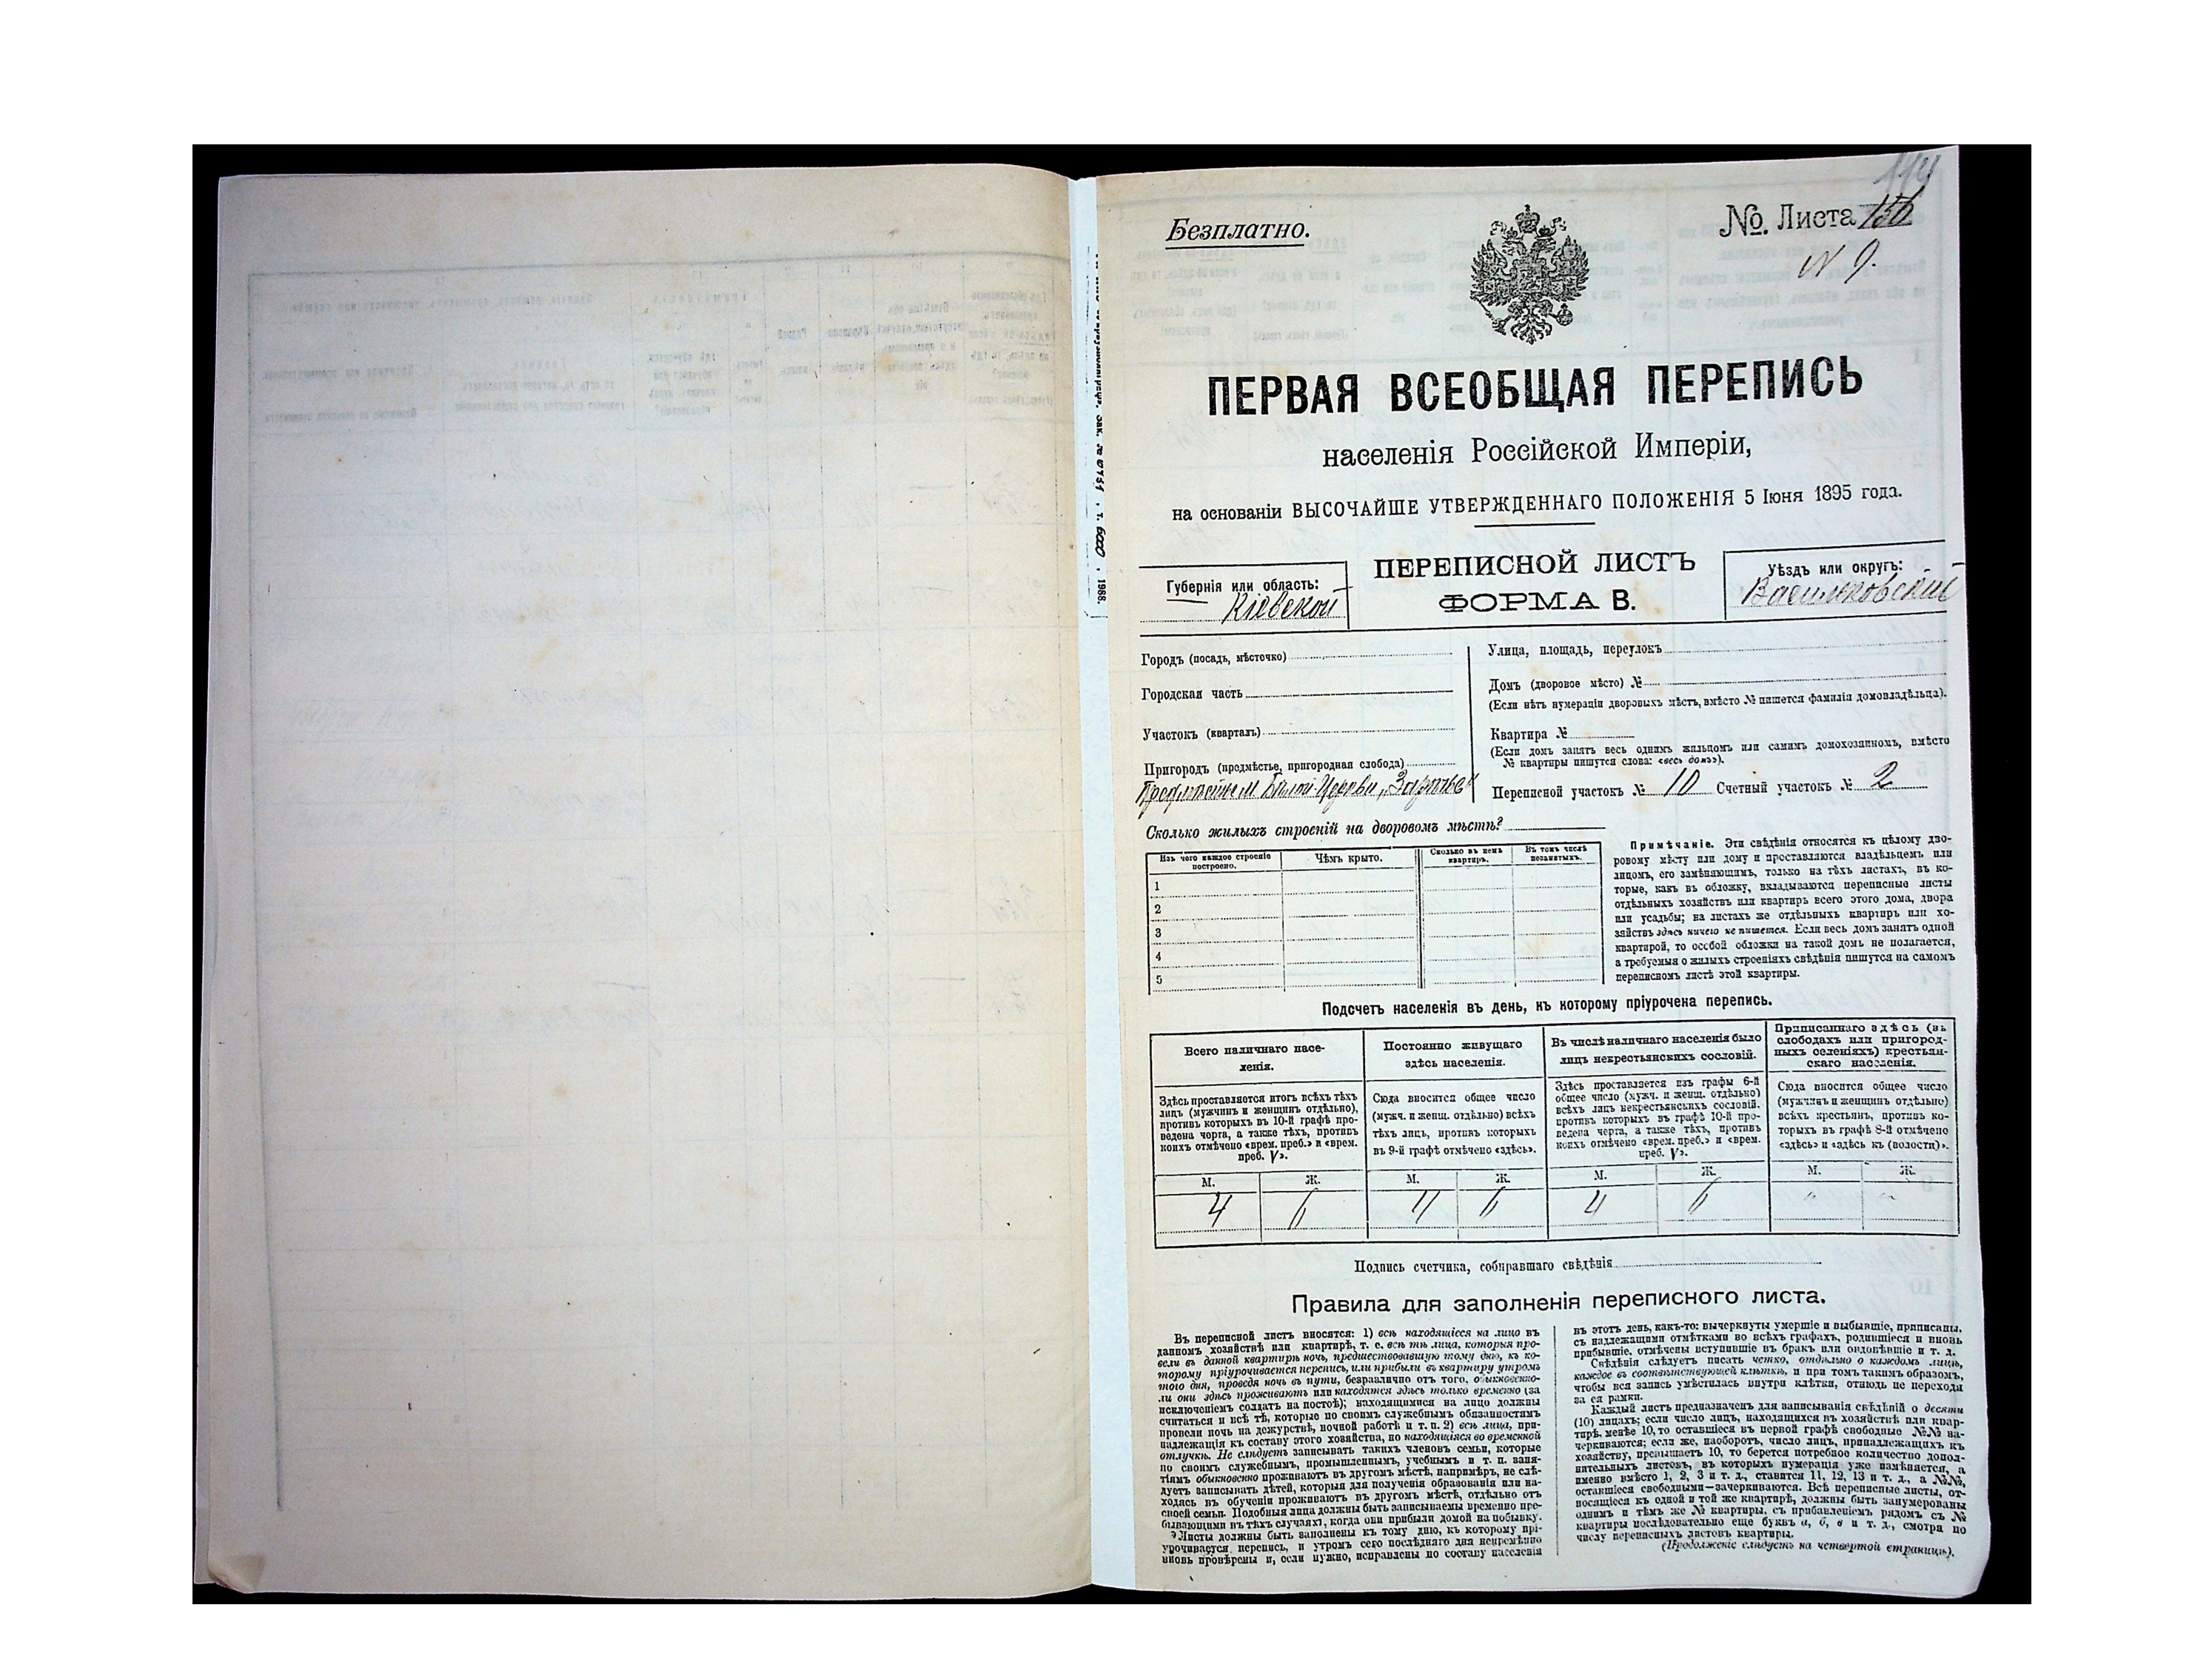 114
Безплатно.
№. Листа 136
N 9.
ПЕРВАЯ ВСЕОБЩАЯ ПЕРЕПИСЬ
населенія Россійской Имперіи,
на основаніи ВЫСОЧАЙШЕ УТВЕРЖДЕННАГО ПОЛОЖЕНІЯ 5 Іюня 1895 года.
Губернія или область:
Кіевской
ПЕРЕПИСНОЙ ЛИСТЪ
ФОРМА В.
Уѣздъ или округъ:
Васильковскій
Городъ (посадъ, мѣстечко)
Городская часть
Участокъ (кварталъ)
Пригородъ (предмѣстье, пригородная слобода)
Предмѣстьем Бѣлой-Церкви „Зарѣчье"
Улица, площадь, переулокъ
Домъ (дворовое мѣсто) №
(Если нѣтъ нумераціи дворовыхъ мѣстъ, вмѣсто № пишется фамилія домовладѣльца).
Квартира №
(Если домъ занятъ весь однимъ жильцомъ или самимъ домохозяиномъ, вмѣсто
№ квартиры пишутся слова: «весь домъ»).
Переписной участокъ № 10 Счетный участокъ № 2
Сколько жилыхъ строеній на дворовомъ мѣстѣ?
Изъ чего каждое строеніе построено.
Чѣмъ крыто.
Сколько въ немъ квартиръ.
Въ томъ числѣ незанятыхъ.
1
2
3
4
5
Примѣчаніе. Эти свѣдѣнія относятся къ цѣлому дво-
ровому мѣсту или дому и проставляются владѣльцемъ или
лицомъ, его замѣняющимъ, только на тѣхъ листахъ, въ ко-
торые, какъ въ обложку, вкладываются переписные листы
отдѣльныхъ хозяйствъ или квартиръ всего этого дома, двора
или усадьбы; на листахъ же отдѣльныхъ квартиръ или хо-
зяйствъ здѣсь ничего не пишется. Если весь домъ занятъ одной
квартирой, то особой обложки на такой домъ не полагается,
а требуемыя о жилыхъ строеніяхъ свѣдѣнія пишутся на самомъ
переписномъ листѣ этой квартиры.
Подсчетъ населенія въ день, къ которому пріурочена перепись.
Всего наличнаго насе-
ленія.
Здѣсь проставляется итогъ всѣхъ тѣхъ
лицъ (мужчинъ и женщинъ отдѣльно),
противъ которыхъ въ 10-й графѣ про-
ведена черта, а также тѣхъ, противъ
коихъ отмѣчено «врем. преб.» и «врем.
преб. V».
Постоянно живущаго
здѣсь населенія.
Сюда вносится общее число
(мужч. и женщ. отдѣльно) всѣхъ
тѣхъ лицъ, противъ которыхъ
въ 9-й графѣ отмѣчено «здѣсь».
Въ числѣ наличнаго населенія было
лицъ некрестьянскихъ сословій.
Здѣсь проставляется изъ графы 6-й
общее число (мужч. и женщ. отдѣльно)
всѣхъ лицъ некрестьянскихъ сословій,
противъ которыхъ въ графѣ 10-й про-
ведена черта, а также тѣхъ, противъ
коихъ отмѣчено «врем. преб.» и «врем.
преб. V».
Приписаннаго здѣсь (въ
слободахъ или пригород-
ныхъ селеніяхъ) крестьян-
скаго населенія.
Сюда вносится общее число
(мужчинъ и женщинъ отдѣльно)
всѣхъ крестьянъ, противъ ко-
торыхъ въ графѣ 8-й отмѣчено
«здѣсь» и «здѣсь къ (волости)».
М. Ж. М. Ж. М. Ж. М. Ж.
4 6 4 6 4 6 " "
Подпись счетчика, собиравшаго свѣдѣнія
Правила для заполненія переписного листа.
Въ переписной листъ вносятся: 1) всѣ находящіеся на лицо въ
данномъ хозяйствѣ или квартирѣ, т. е. всѣ тѣ лица, которыя про-
вели въ данной квартирѣ ночь, предшествовавшую тому дню, къ ко-
торому пріурочивается перепись, или прибыли въ квартиру утромъ
того дня, проведя ночь въ пути, безразлично отъ того, обыкновенно-
ли они здѣсь проживаютъ или находятся здѣсь только временно (за
исключеніемъ солдатъ на постоѣ); находящимися на лицо должны
считаться и всѣ тѣ, которые по своимъ служебнымъ обязанностямъ
провели ночь на дежурствѣ, ночной работѣ и т. п. 2) всѣ лица, при-
надлежащія къ составу этого хозяйства, но находящіяся во временной
отлучкѣ. Не слѣдуетъ записывать такихъ членовъ семьи, которые
по своимъ служебнымъ, промышленнымъ, учебнымъ и т. п. заня-
тіямъ обыкновенно проживаютъ въ другомъ мѣстѣ, напримѣръ, не слѣ-
дуетъ записывать дѣтей, которыя для полученія образованія или на-
ходясь въ обученіи проживаютъ въ другомъ мѣстѣ, отдѣльно отъ
своей семьи. Подобныя лица должны быть записываемы временно пре-
бывающими въ тѣхъ случаяхъ, когда они прибыли домой на побывку.
Листы должны быть заполнены къ тому дню, къ которому прі-
урочивается перепись, и утромъ сего послѣдняго дня непремѣнно
вновь провѣрены и, если нужно, исправлены по составу населенія
въ этотъ день, какъ-то: вычеркнуты умершіе и выбывшіе, приписаны,
съ надлежащими отмѣтками во всѣхъ графахъ, родившіеся и вновь
прибывшіе, отмѣчены вступившіе въ бракъ или овдовѣвшіе и т. д.
Свѣдѣнія слѣдуетъ писать четко, отдѣльно о каждомъ лицѣ,
каждое въ соотвѣтствующей клѣткѣ, и при томъ такимъ образомъ,
чтобы вся запись умѣстилась внутри клѣтки, отнюдь не переходя
за ея рамки.
Каждый листъ предназначенъ для записыванія свѣдѣній о десяти
(10) лицахъ; если число лицъ, находящихся въ хозяйствѣ или квар-
тирѣ, менѣе 10, то оставшіеся въ первой графѣ свободные №№ за-
черкиваются; если же, наоборотъ, число лицъ, принадлежащихъ къ
хозяйству, превышаетъ 10, то берется потребное количество допол-
нительныхъ листовъ, въ которыхъ нумерація уже измѣняется, а
именно вмѣсто 1, 2, 3 и т. д., ставится 11, 12, 13 и т. д., а №№,
оставшіеся свободными—зачеркиваются. Всѣ переписные листы, от-
носящіеся къ одной и той же квартирѣ, должны быть занумерованы
однимъ и тѣмъ же № квартиры, съ прибавленіемъ рядомъ съ №
квартиры послѣдовательно еще буквъ а, б, в и т. д., смотря по
числу переписныхъ листовъ квартиры.
(Продолженіе слѣдуетъ на четвертой страницѣ).